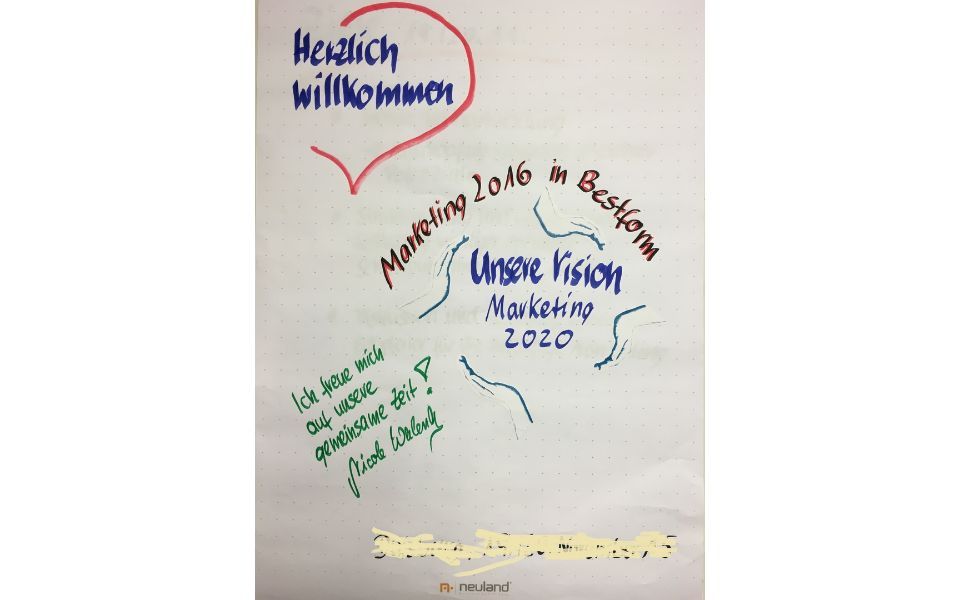 Herzlich
willkommen
Marketing 2016 in Bestform
Unsere Vision
Marketing
2020
Ich freue mich
auf unsere
gemeinsame Zeit!
Nicole
neuland